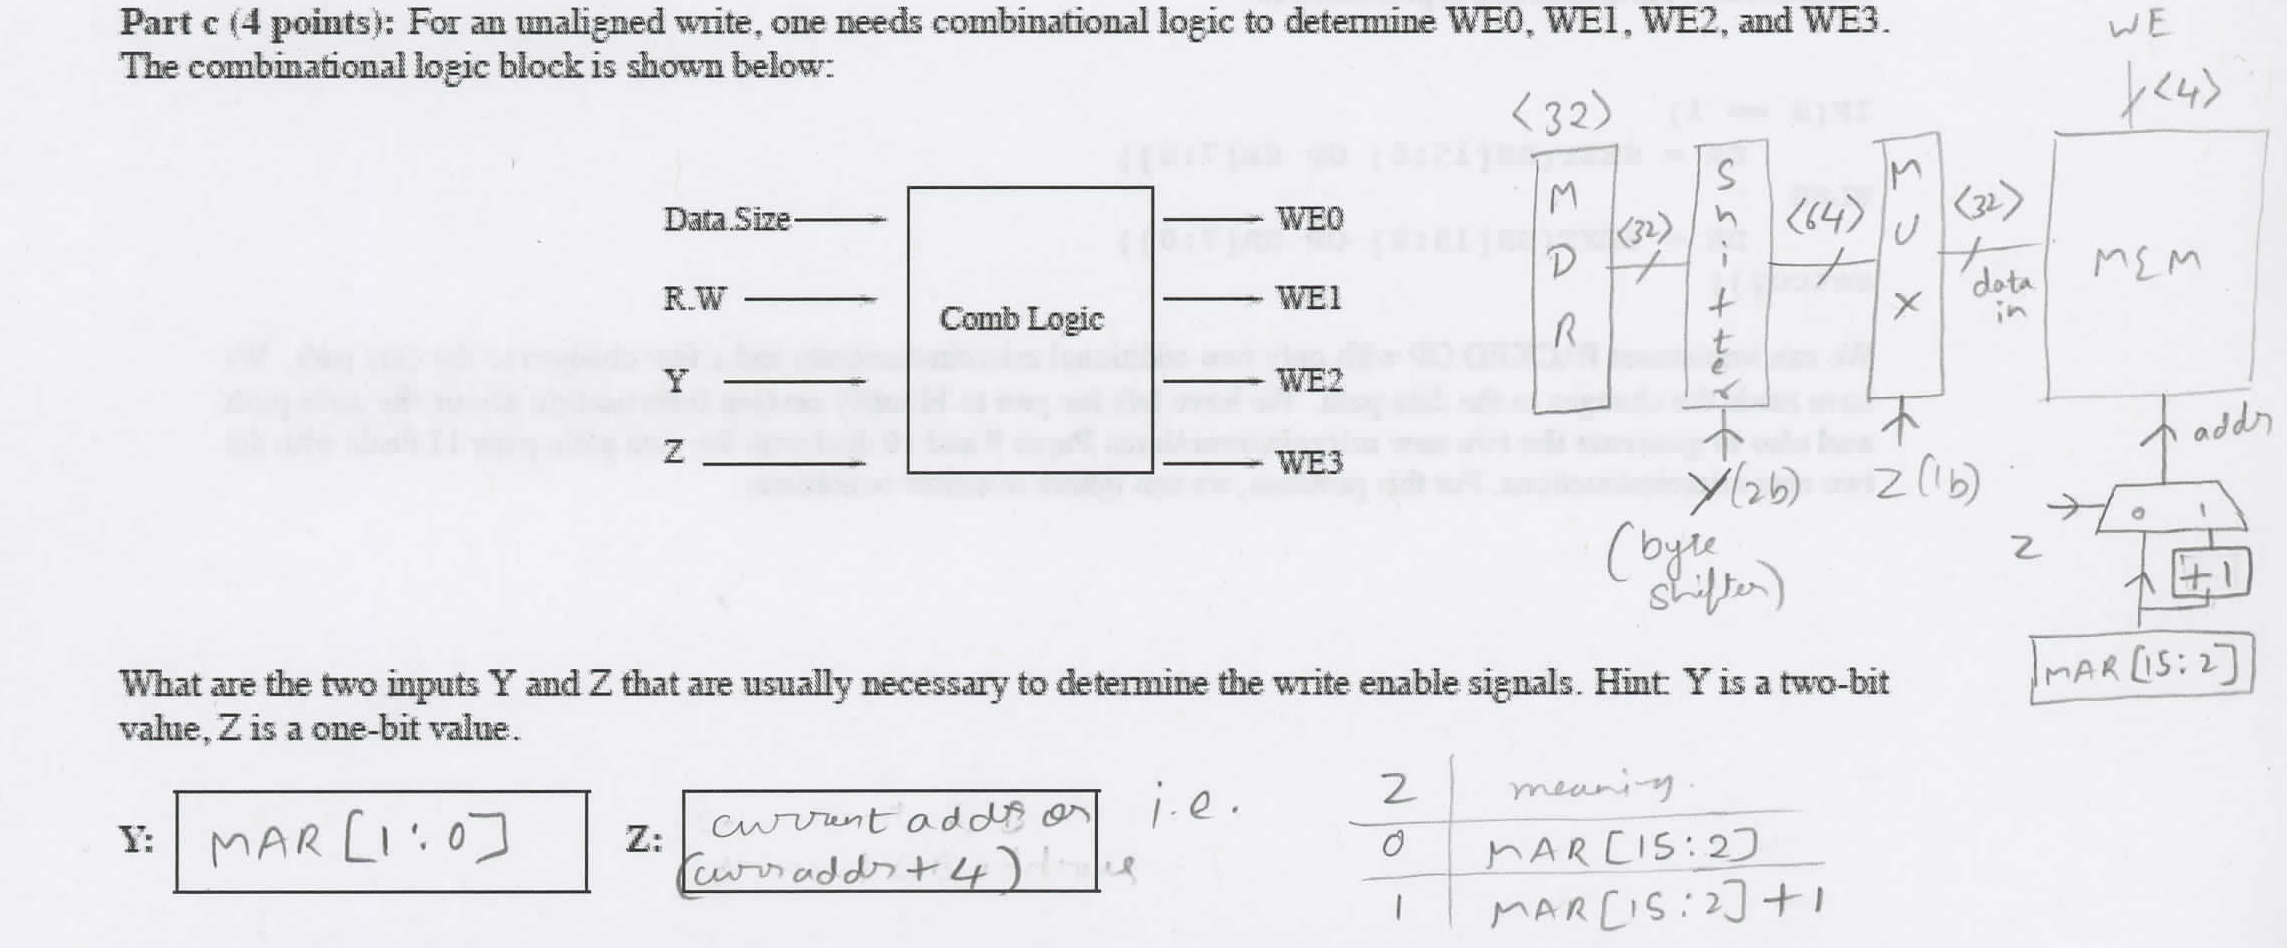 Part c (4 points): For an unaligned write, one needs combinational logic to determine WE0, WE1, WE2, and WE3.
The combinational logic block is shown below:
Data.Size
R.W
Y
Z
Comb Logic
WE0
WE1
WE2
WE3
WE
<4>
<32>
MDR
<32>
Shifter
<64>
MUX
<32>
data
in
MEM
addr
Y(2b)
(byte
shifter)
Z(1b)
Z
0 1
+1
MAR[15:2]
What are the two inputs Y and Z that are usually necessary to determine the write enable signals. Hint: Y is a two-bit
value, Z is a one-bit value.
Y: MAR [1:0]
Z: current addr or
(curr addr + 4)
i.e.
Z meaning
0 MAR[15:2]
1 MAR[15:2]+1